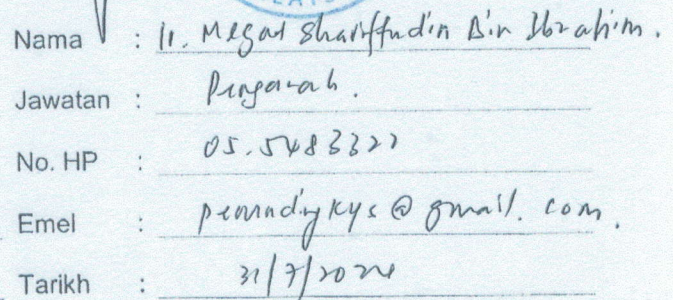 Nama : Ir. Megat Shariffudin Bin Ibrahim.
Jawatan : Pengarah.
No. HP : 05.5483322
Emel : @ gmail.com.
Tarikh : 31/7/2024